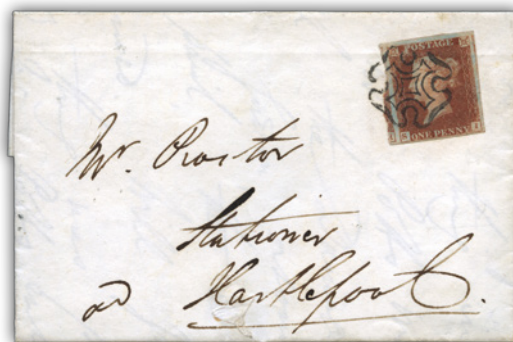 POSTAGE
S I
ONE PENNY
Mr. Procter
Stationer
Hartlepool.